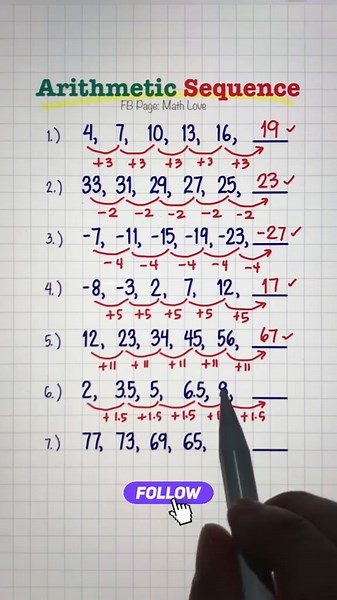 Arithmetic Sequence
FB Page: Math Love
1.) 4, 7, 10, 13, 16, 19 ✓
+3 +3 +3 +3 +3
2.) 33, 31, 29, 27, 25, 23 ✓
-2 -2 -2 -2 -2
3.) -7, -11, -15, -19, -23, -27 ✓
-4 -4 -4 -4 -4
4.) -8, -3, 2, 7, 12, 17 ✓
+5 +5 +5 +5 +5
5.) 12, 23, 34, 45, 56, 67 ✓
+11 +11 +11 +11 +11
6.) 2, 3.5, 5, 6.5,
+1.5 +1.5 +1.5 +1.5
7.) 77, 73, 69, 65,
FOLLOW